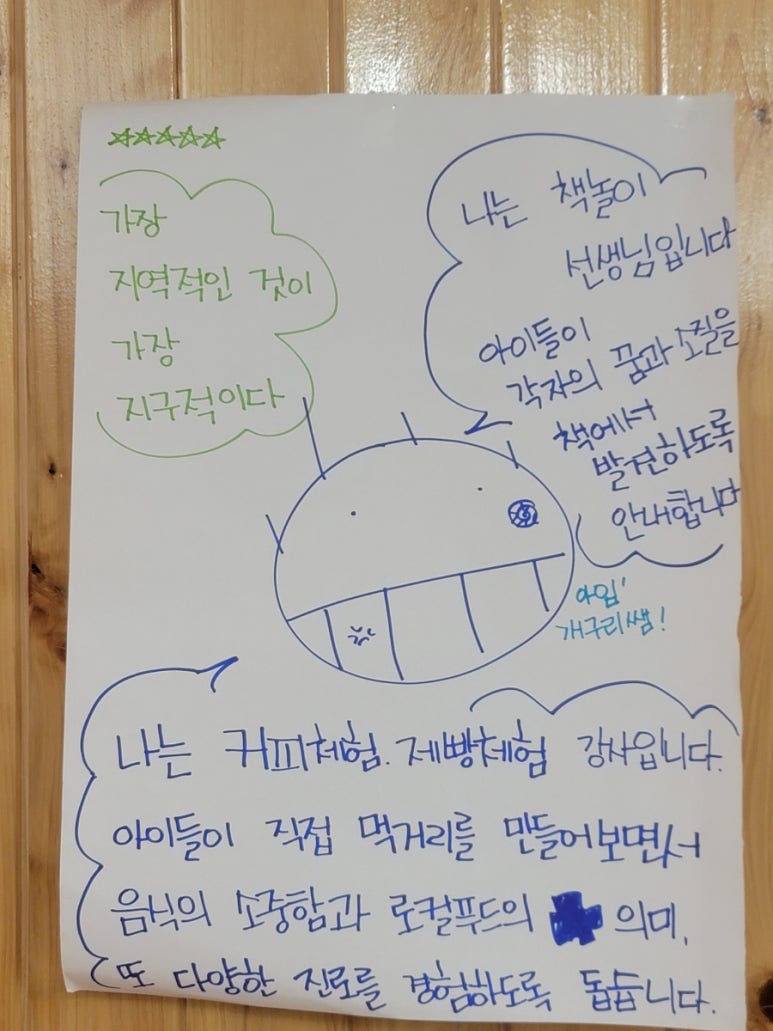 가장
지역적인 것이
가장
지구적이다
나는 책놀이
선생님입니다
아이들이
각자의 꿈과 소질을
책에서
발견하도록
안내합니다
아입'
개구리쌤!
나는 커피체험. 제빵체험 강사입니다.
아이들이 직접 먹거리를 만들어보면서
음식의 소중함과 로컬푸드의 의미,
또 다양한 진로를 경험하도록 돕습니다.